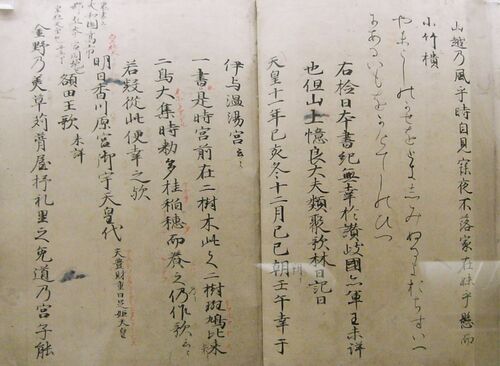 山越乃風乎時自見寐夜不落家在妹乎懸而
小竹櫃
やまこしのかせをときしみぬるよおちすいへ
なるいもをかけてしのひつ
右檢日本書紀無幸於讃岐國亦軍王未詳
也但山上憶良大夫類聚歌林曰記曰
天皇十一年己亥冬十二月己巳朔壬午幸于
伊与温湯宮云々
一書是時宮前在二樹木此之二樹斑鳩比米
二鳥大集時勅多挂稲穂而養之仍作歌云々
若疑從此便幸之歟
明日香川原宮御宇天皇代 天豊財重日足姫天皇
額田王歌 未詳
金野乃美草苅葺屋杼礼里之兔道乃宮子能